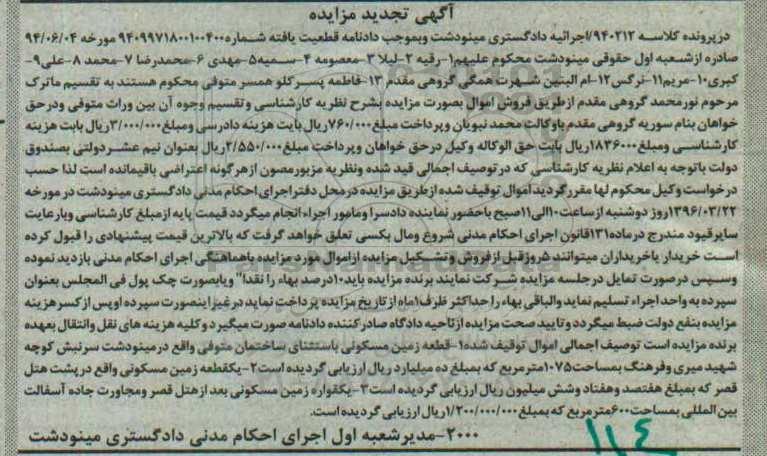 آگهی تجدید مزایده
در پرونده کلاسه ۹۴۰۲۱۲/اجرائیه دادگستری مینودشت وبموجب دادنامه قطعیت یافته شماره ۹۴۰۹۹۷۱۸۰۰۱۰۰۴۰۰ مورخه ۹۴/۰۶/۰۴
صادره از شعبه اول حقوقی مینودشت محکوم علیهم۱-رقیه ۲-لیلا ۳-معصومه ۴-سمیه۵-مهدی ۶-محمدرضا ۷-محمد ۸-علی۹-
کبری۱۰-مریم۱۱-نرگس۱۲-ام البنین شهرت همگی گروهی مقدم ۱۳-فاطمه پسرکلو همسر متوفی محکوم هستند به تقسیم ماترک
مرحوم نورمحمد گروهی مقدم ازطریق فروش اموال بصورت مزایده بشرح نظریه کارشناسی و تقسیم وجوه آن بین وراث متوفی ودرحق
خواهان بنام سوریه گروهی مقدم باوکالت محمد نبویان وپرداخت مبلغ۷۶۰/۰۰۰ریال بابت هزینه دادرسی ومبلغ۳/۰۰۰/۰۰۰ریال بابت هزینه
کارشناسی ومبلغ۱۸۳۶۰۰۰ریال بابت حق الوکاله وکیل درحق خواهان وپرداخت مبلغ۲/۵۵۰/۰۰۰ریال بعنوان نیم عشردولتی بصندوق
دولت باتوجه به اعلام نظریه کارشناسی که درتوصیف اجمالی قید شده ونظریه مزبورمصون ازهرگونه اعتراضی باقیمانده است لذا حسب
درخواست وکیل محکوم لها مقررگردید اموال توقیف شده ازطریق مزایده درمحل دفتراجرای احکام مدنی دادگستری مینودشت در مورخه
۱۳۹۶/۰۳/۲۲روز دوشنبه ازساعت۱۰الی۱۱صبح باحضورنماینده دادسرا ومامور اجراء انجام میگردد قیمت پایه ازمبلغ کارشناسی وبارعایت
سایرقیود مندرج درماده۱۳۱قانون اجرای احکام مدنی شروع ومال بکسی تعلق خواهد گرفت که بالاترین قیمت پیشنهادی را قبول کرده
است خریدار یاخریداران میتوانند ۵روزقبل ازفروش وتشکیل مزایده ازاموال مورد مزایده باهماهنگی اجرای احکام مدنی بازدید نموده
وسپس درصورت تمایل درجلسه مزایده شرکت نمایند برنده مزایده باید۱۰درصد بهاء را نقدا" ویابصورت چک پول فی المجلس بعنوان
سپرده به واحد اجراء تسلیم نماید والباقی بهاء را حداکثر ظرف۱ماه از تاریخ مزایده پرداخت نماید درغیراینصورت سپرده اوپس ازکسرهزینه
مزایده بنفع دولت ضبط میگردد وتایید صحت مزایده ازناحیه دادگاه صادرکننده دادنامه صورت میگیرد وکلیه هزینه های نقل وانتقال بعهده
برنده مزایده است توصیف اجمالی اموال توقیف شده۱-قطعه زمین مسکونی باستثنای ساختمان متوفی واقع درمینودشت سرنبش کوچه
شهید میری وفرهنگ بمساحت۱۰۷۵مترمربع که بمبلغ ده میلیارد ریال ارزیابی گردیده است۲-یکقطعه زمین مسکونی واقع درپشت هتل
قصر که بمبلغ هفتصد وهفتاد وشش میلیون ریال ارزیابی گردیده است۳-یکقواره زمین مسکونی بعد ازهتل قصر ومجاورت جاده آسفالت
بین المللی بمساحت۶۰۰مترمربع که بمبلغ ۱/۲۰۰/۰۰۰/۰۰۰ریال ارزیابی گردیده است.
۲۰۰۰-مدیرشعبه اول اجرای احکام مدنی دادگستری مینودشت
۱۱۴
ParsNamadData